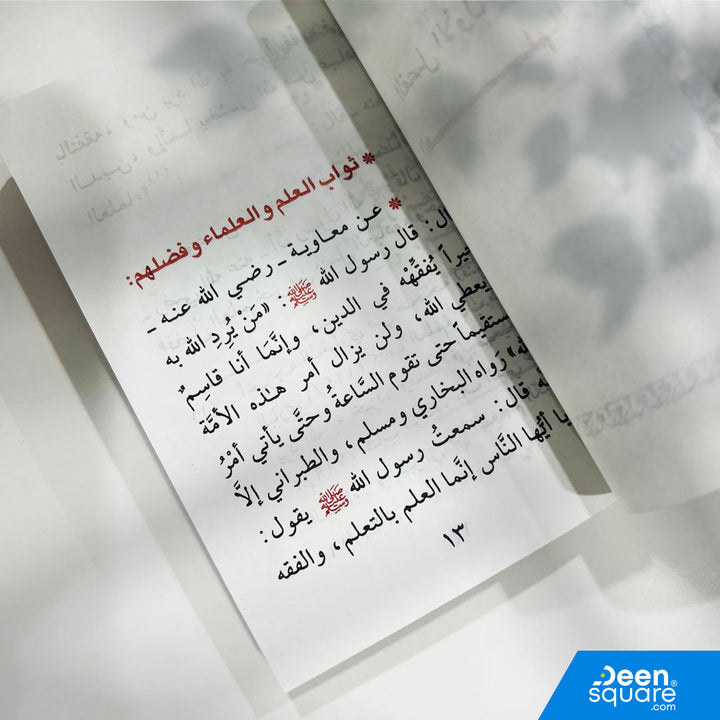 * ثواب العلم والعلماء وفضلهم:
* عن معاوية ـ رضي الله عنه ـ
قال: قال رسول الله ﷺ: «مَنْ يُرِدِ الله به
خيراً يُفقِّهْه في الدين، وإنَّمَا أنا قاسِمٌ
يعطي الله، ولن يزال أمر هذه الأمَّة
مستقيماً حتى تقوم السَّاعةُ وحتَّى يأتي أمْرُ
رَواه البخاري ومسلم، والطبراني إلاَّ
قال: سمعتُ رسول الله ﷺ يقول:
يا أيُّها النَّاس إنَّما العلم بالتعلم، والفقه
١٣
Deen®
square
.com